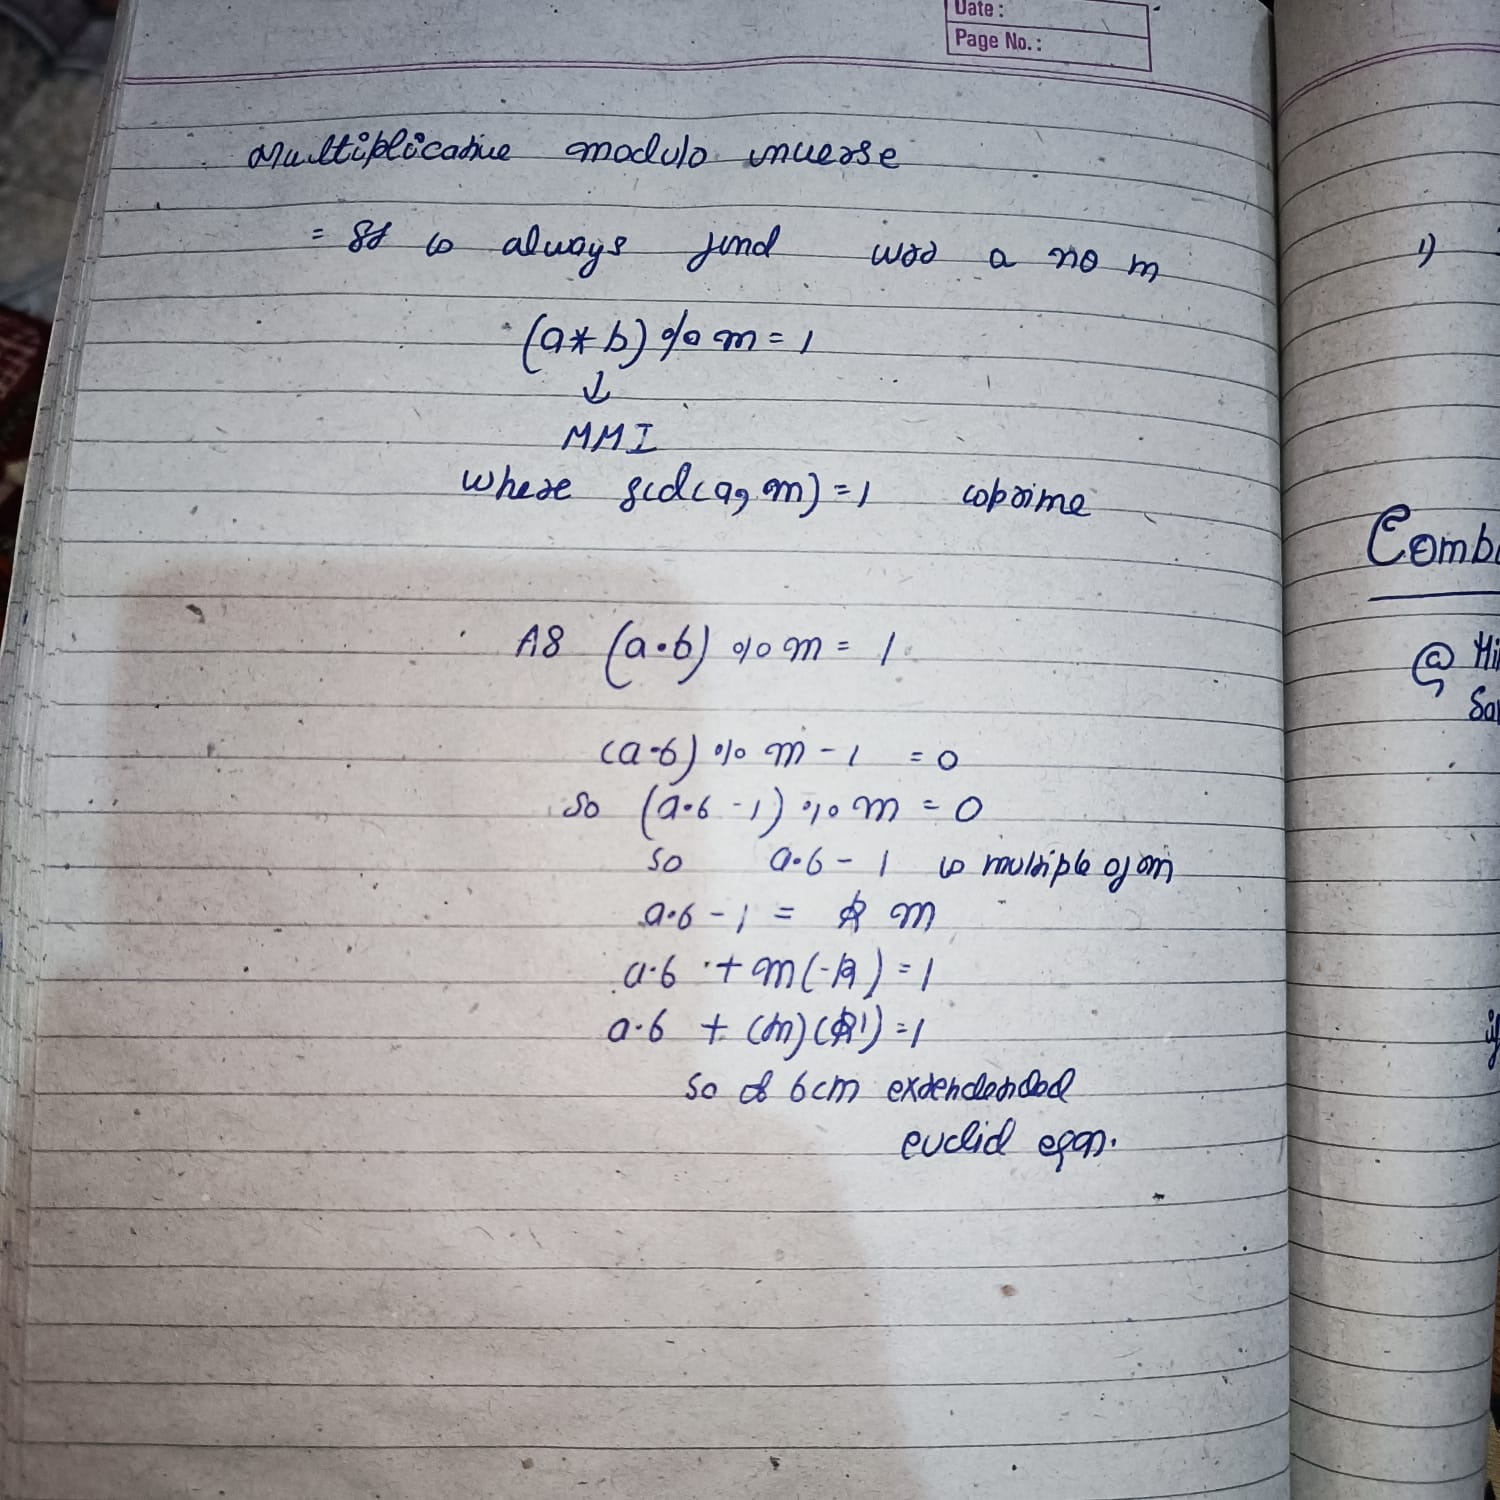 Date :
Page No. :
Multiplicative modulo inverse
= It is always find w.r.t a no m
(a * b) % m = 1
↓
MMI
where gcd(a, m) = 1 coprime
As (a·b) % m = 1
(a·b) % m - 1 = 0
so (a·b - 1) % m = 0
so a·b - 1 is multiple of m
a·b - 1 = k m
a·b + m(-k) = 1
a·b + (m)(k') = 1
so extendended
euclid eqn.
1)
Comb
@ Mi
Sol
if